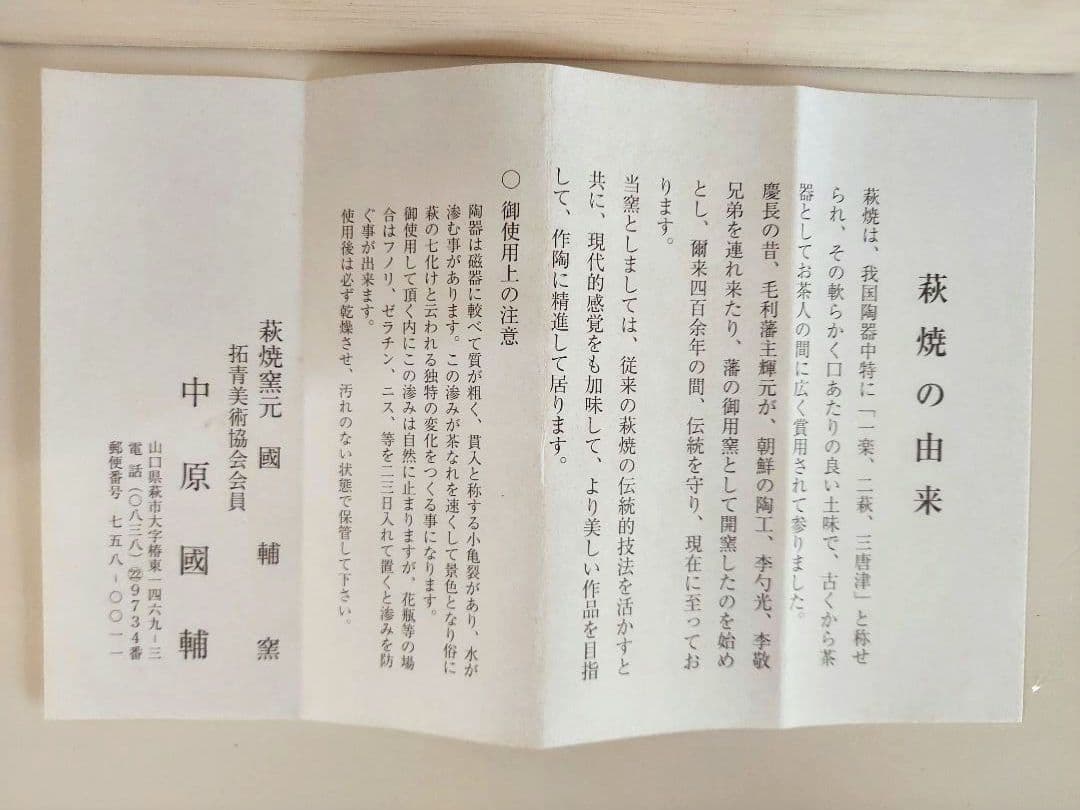 萩焼の由来
萩焼は、我国陶器中特に「一楽、二萩、三唐津」と称せ
られ、その軟らかく口あたりの良い土味で、古くから茶
器としてお茶人の間に広く賞用されて参りました。
慶長の昔、毛利藩主輝元が、朝鮮の陶工、李勺光、李敬
兄弟を連れ来たり、藩の御用窯として開窯したのを始め
とし、爾来四百余年の間、伝統を守り、現在に至ってお
ります。
当窯としましては、従来の萩焼の伝統的技法を活かすと
共に、現代的感覚をも加味して、より美しい作品を目指
して、作陶に精進して居ります。
〇 御使用上の注意
陶器は磁器に較べて質が粗く、貫入と称する小亀裂があり、水が
滲む事があります。この滲みが茶なれを速くして景色となり俗に
萩の七化けと云われる独特の変化をつくる事になります。
御使用して頂く内にこの滲みは自然に止まりますが、花瓶等の場
合はフノリ、ゼラチン、ニス、等を二三日入れて置くと滲みを防
ぐ事が出来ます。
使用後は必ず乾燥させ、汚れのない状態で保管して下さい。
萩焼窯元 國輔窯
拓青美術協会会員
中原國輔
山口県萩市大字椿東一四六九-三
電話(〇八三八)㉒9734番
郵便番号 七五八-〇〇一一